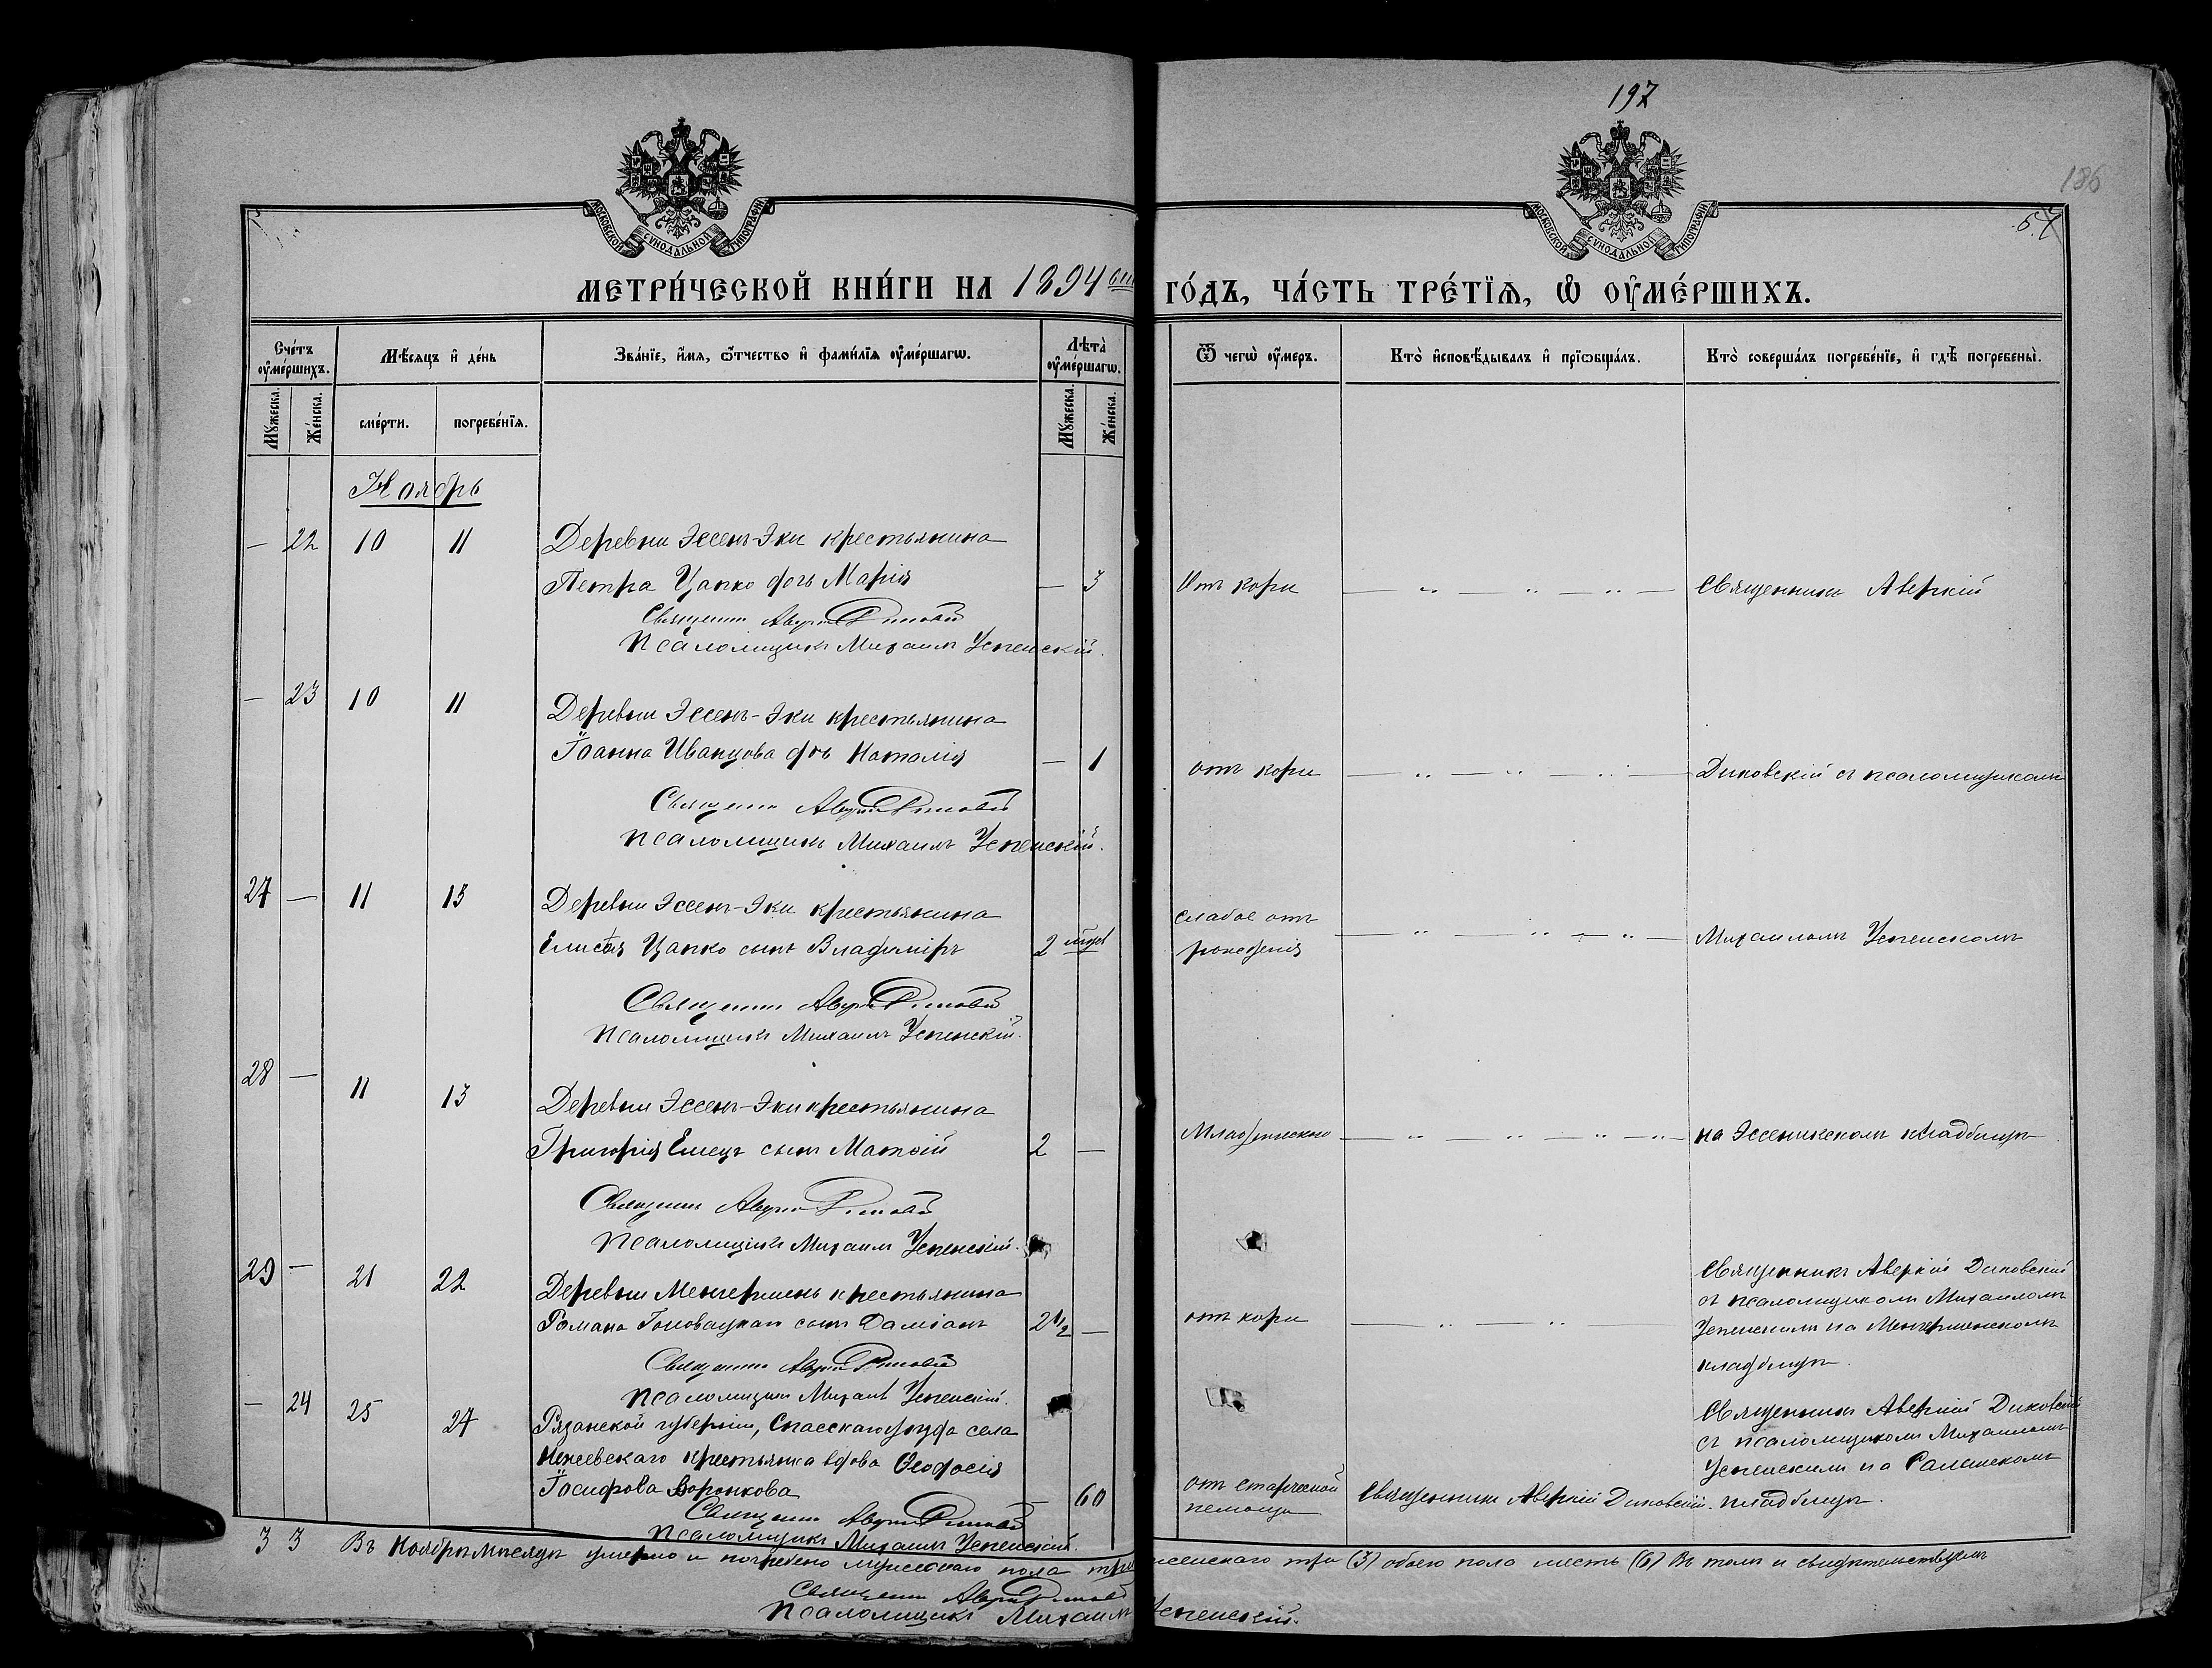 197
186
МОСКОВСКОЙ СѴНОДАЛЬНОЙ ТИПОГРАФІИ
МОСКОВСКОЙ СѴНОДАЛЬНОЙ ТИПОГРАФІИ
МЕТРИ́ЧЕСКОЙ КНИ́ГИ НА 1894 ый
ГО́ДЪ, ЧА́СТЬ ТРЕ́ТІЯ, Ѡ ОУ҆МЕ́РШИХЪ.
Сче́тъ оу҆ме́ршихъ.
Мѣ́сяцъ и҆ де́нь
Зва́ніе, и҆́мя, ѻ҆́тчество и҆ фами́лія оу҆ме́ршагѡ.
Лѣ́та оу҆ме́ршагѡ.
Ѿ чегѡ̀ оу҆́меръ.
Кто̀ и҆сповѣ́дывалъ и҆ прїѡбща́лъ.
Кто̀ соверша́лъ погребе́ніе, и҆ гдѣ̀ погребены̀.
Му́жеска.
Же́нска.
сме́рти.
погребе́нїя.
Му́жеска.
Же́нска.
Ноябрь
— 22 10 11 Деревни Эссенъ-Эки крестьянина
Петра Цапко дочь Марія — 3 Отъ кори Священникъ Аверкій
Священникъ Аверкій Диковскій
Псаломщикъ Михаилъ Успенскій.
— 23 10 11 Деревни Эссенъ-Эки крестьянина
Іоанна Иванцова дочь Наталія — 1 отъ кори Диковскій съ псаломщикомъ
Священникъ Аверкій Диковскій
Псаломщикъ Михаилъ Успенскій.
27 — 11 13 Деревни Эссенъ-Эки крестьянина
Елисея Цапко сынъ Владиміръ 2 слабое отъ рожденія Михаиломъ Успенскимъ
Священникъ Аверкій Диковскій
Псаломщикъ Михаилъ Успенскій.
28 — 11 13 Деревни Эссенъ-Эки крестьянина
Григорія Емецъ сынъ Матѳій 2 — на Эссенэкскомъ кладбищѣ
Священникъ Аверкій Диковскій
Псаломщикъ Михаилъ Успенскій.
29 — 21 22 Деревни Менгермень крестьянина
Романа Головацкаго сынъ Даміанъ 2 1/2 — отъ кори
Священникъ Аверкій Диковскій
съ псаломщикомъ Михаиломъ
Успенскимъ на Менгерменскомъ
кладбищѣ.
Священникъ Аверкій Диковскій
Псаломщикъ Михаилъ Успенскій.
— 24 25 27 Рязанской губерніи, Спасскаго уѣзда села
крестьянка вдова Ѳеодосія
Іосифова Воронкова — 60
отъ старческой
немощи
Священникъ Аверкій Диковскій.
Священникъ Аверкій Диковскій
съ псаломщикомъ Михаиломъ
Успенскимъ на
кладбищѣ.
Священникъ Аверкій Диковскій
Псаломщикъ Михаилъ Успенскій.
3 3 Въ Ноябрѣ мѣсяцѣ умерло и погребено мужескаго пола три женскаго три (3) обоего пола шесть (6) Въ томъ и свидѣтельствуемъ
Священникъ Аверкій Диковскій
Псаломщикъ Михаилъ Успенскій.